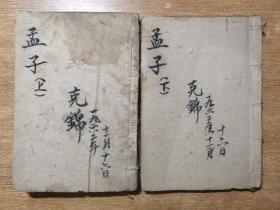 孟子(上)
克錦
一九六二年
十二月十六日
孟子(下)
克錦
一九六二年十二月
十六日